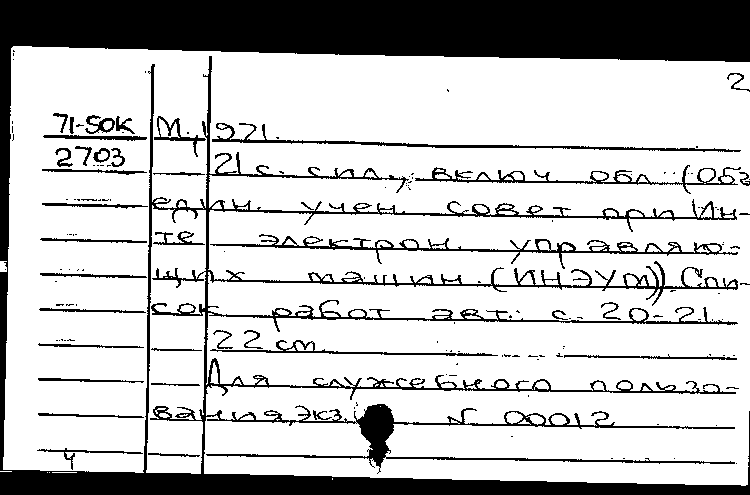 2
71-SOK М., 1971.
2703 21 с. с ил., включ. обл. (Объ-
един. учен. совет при Ин-
те электрон. управляю-
щих машин. (ИНЭУМ)). Спи-
сок работ авт.: с. 20-21
22 cm
Для служебного пользо-
вания, Экз. N 00012
4